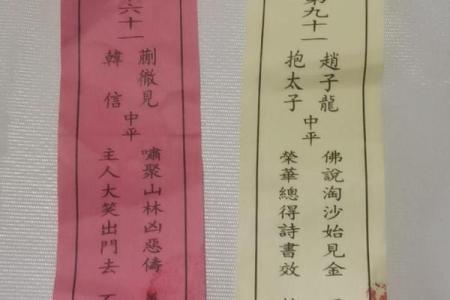 第九十一
趙子龍
抱太子
中平
佛說淘沙始見金
榮華總得詩書效
六十一
蒯徹見
韓信
中平
嘯聚山林凶惡儔
主人大笑出門去